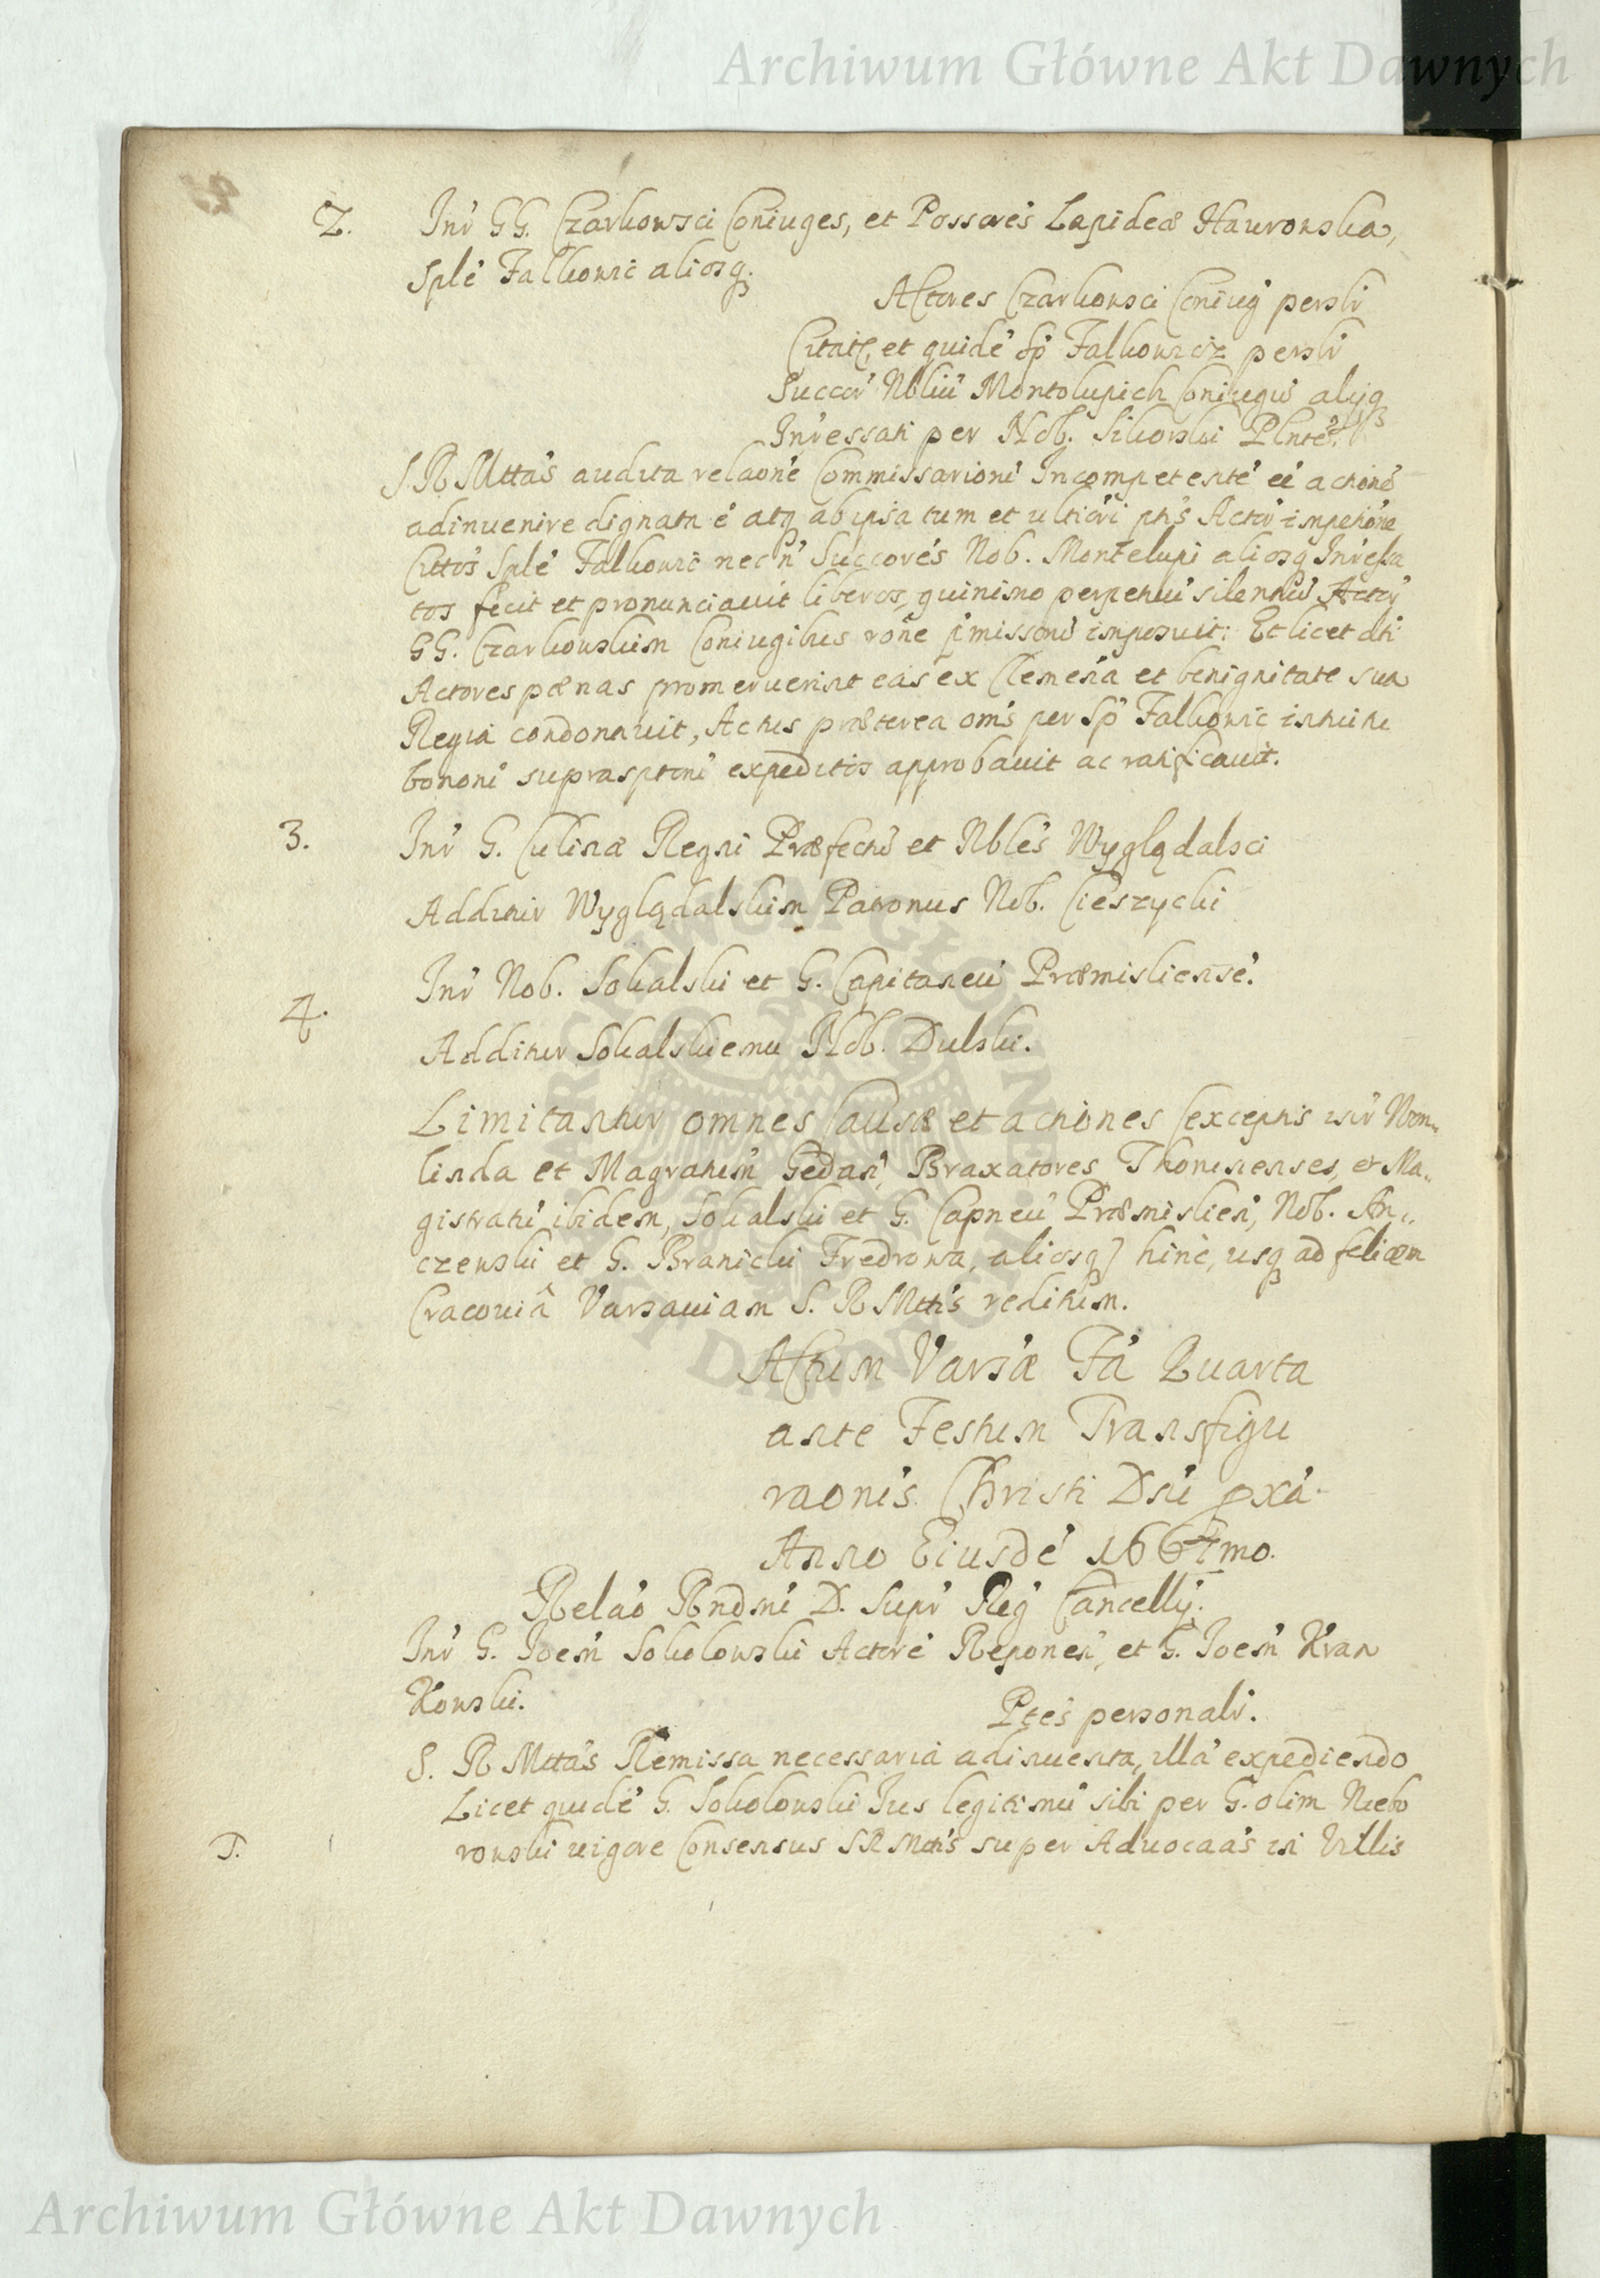 Archiwum Główne Akt Dawnych
2. Int' GG. Czarkowsci Coniuges, et Possores Lapideæ Hawrowska,
Splė Falkowic aliosq.
Actores Czarkowsci Coniug persłr
Citatę, et quidė Sp' Falkowicz persłr
Succor' Nbliū Montolupich Coniugū alijq
Intressati per Nob. Sikorski Plntė.
S. R. Mttas audita relaonė Commissarionė Incompetentė eė actionė
adinuenire dignata ė atq ab ipsa tum et ulteriori pts Actor' impetione
Cittos Splė Falkowic nec n' Succores Nob. Montelupi aliosq Intressa
tos fecit et pronunciauit liberos, quinimo perpetuū silentiū Actor'
GG. Czarkowskim Coniugibus rone p'missorū imposuit: Et licet dti
Actores pænas promeruerint eas ex Clementia et benignitate sua
Regia condonauit, Actus præterea oms per Sp' Falkowic intuitu
bonorū suprasptorū expeditos approbauit ac ratificauit.
3. Int' G. Culinæ Regni Præfectū et Nbles Wyglądalsci
Additur Wyglądalskim Patronus Nob. Cieszycki
4. Int' Nob. Sokalski et G. Capitaneū Præmisliensė.
Additur Sokalskiemu Nob. Dulski.
Limitantur omnes Causæ et actiones (exceptis int' Nom..
linda et Magratum Gedan', Braxatores Thorunenses, et Ma..
gistratū ibidem, Sokalski et G. Capneū Præmislien', Nob. An..
czewski et G. Branicki Fredrowa, aliosq) hinc, usq ad felicem
Cracouiâ Varsauiam S. R Mttis reditum.
Actum Varsæ Fa Quarta
ante Festum Transfigu
raonis Christi Dni pxa.
Anno Eiusdė 1664mo.
Relao Rndmi D. Supr' Reg Cancellij.
Int' G. Joem Sokolowski Actorė Reponen', et G. Joem Kran
Kowski.
Ptes personalr.
S. R Mttas Remissa necessaria adinuenta, illa expediendo
Licet quidė G. Sokolowski Jus legitimū sibi per G. olim Niebo
1. rowski uigore Consensus SR Mttis super Aduocaas in Villis
Archiwum Główne Akt Dawnych